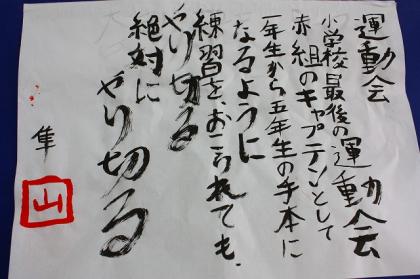 運動会
小学校最後の運動会
赤組のキャプテンとして
一年生から五年生の手本に
なるように
練習を、おこられても、
やり切る
絶対に
やり切る
隼
山